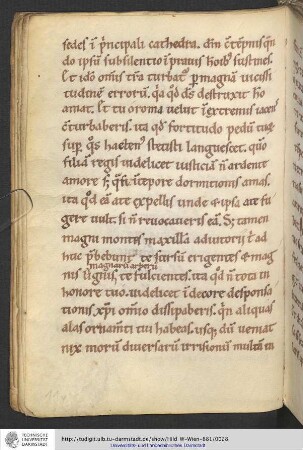 sedes i pͥncipali cathedra. dm̄ ↄ̄tēpnis qn̄
do ipsū sub silentio i prauis hoib; sustines.
Et idō omis tr̄a turbat᷒ p magnā uicissi
tudinē erroꝝ. qͣa qd dˢ destruxit hō
amat. Et tu o roma uelut i extremis iacēs
ↄ̄turbaberis. ita qd fortitudo pedū tuoꝝ
sup qͦs hacten᷒ stetisti languescet. quo
filiā regis uidelicet iusticiā n̄ ardente
amore sꝫ qͣsi ī tepore dormitionis amas.
ita qd eā a te expellis unde & ipsa a te fu
gere uult. si n̄ reuocaueris eā. Sꝫ tamen
magni montes maxillā adiutorii t̄ ad
huc p̄bebunt te sursū erigentes & mag
nis lignis magnarū arborū te fulcientes. ita qd n̄ tota in
honore tuo. uidelicet i decore desponsa
tionis xpi omīo dissipaberis. qn̄ aliquas
alas ornam̄ti tui habeas. usq; dū ueniat
nix morū diuersarū irrisionū multā in
TECHNISCHE
UNIVERSITÄT
DARMSTADT
http://tudigit.ulb.tu-darmstadt.de/show/Hild_W-Wien-881/0028
Universitäts- und Landesbibliothek Darmstadt